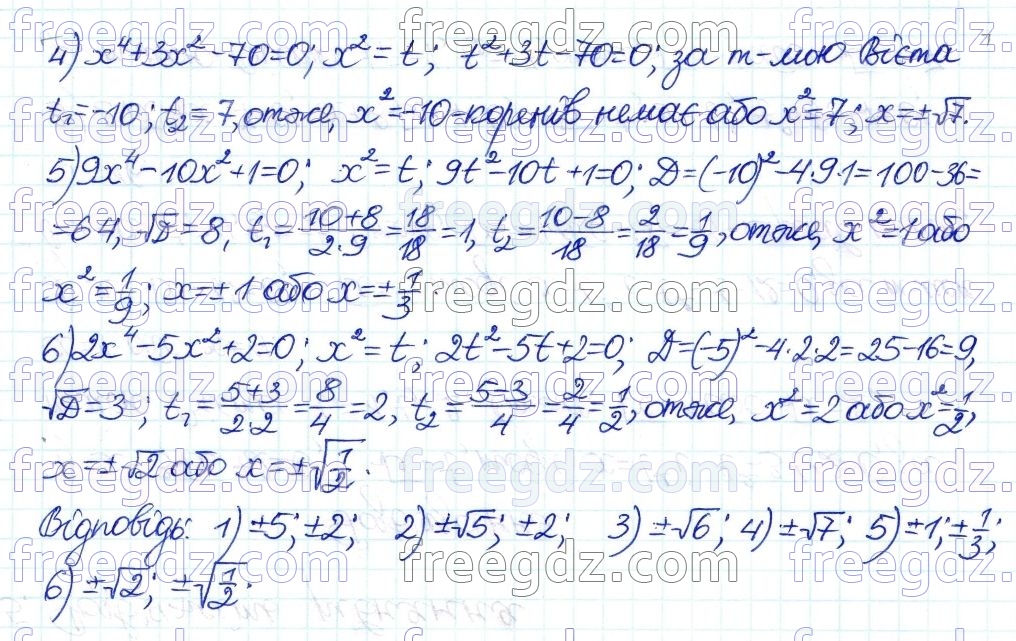 4) x⁴+3x²-70=0; x²=t; t²+3t-70=0; за т-мою Вієта
t₁=-10; t₂=7, отже, x²=-10-коренів немає або x²=7; x=±√7.
5) 9x⁴-10x²+1=0; x²=t; 9t²-10t+1=0; D=(-10)²-4·9·1=100-36=
=64, √D=8, t₁=(10+8)/(2·9)=18/18=1, t₂=(10-8)/18=2/18=1/9, отже, x²=1 або
x²=1/9; x=±1 або x=±1/3.
6) 2x⁴-5x²+2=0; x²=t; 2t²-5t+2=0; D=(-5)²-4·2·2=25-16=9,
√D=3; t₁=(5+3)/(2·2)=8/4=2, t₂=(5-3)/4=2/4=1/2, отже, x²=2 або x²=1/2,
x=±√2 або x=±√(1/2).
Відповідь: 1) ±5; ±2; 2) ±√5; ±2; 3) ±√6; 4) ±√7; 5) ±1; ±1/3;
6) ±√2; ±√(1/2).
freegdz.com